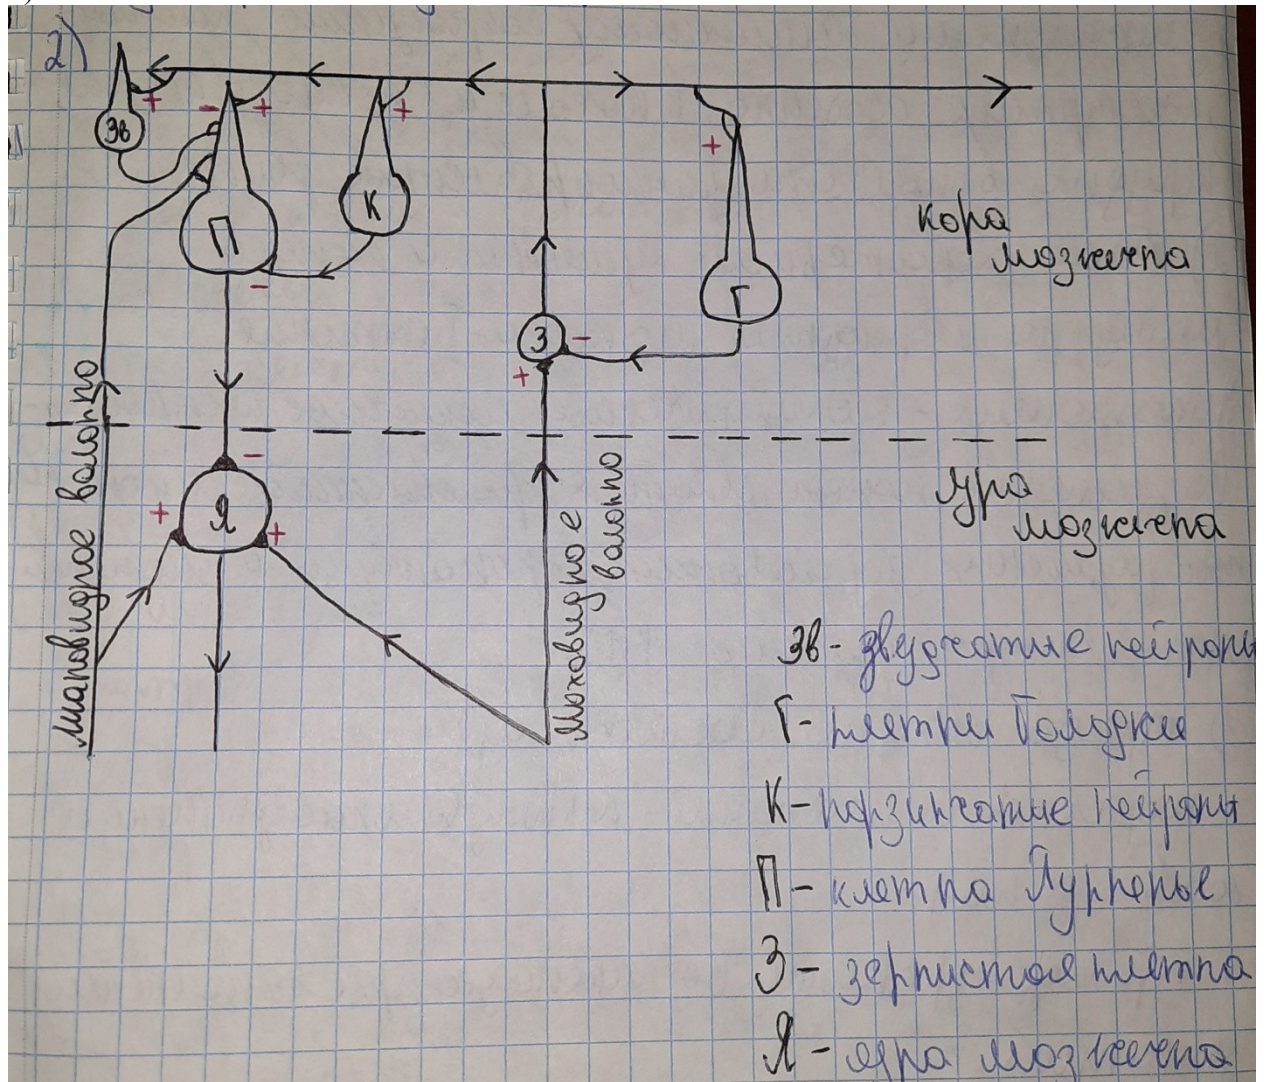 2)
Зв
+
-
+
+
+
П
К
Г
кора
мозжечка
-
З
-
+
Лиановидное волокно
Моховидное
волокно
-
Я
+
+
ядра
мозжечка
Зв- звездчатые нейроны
Г- клетки Гольджи
К- корзинчатые нейроны
П- клетка Пуркенье
З- зернистая клетка
Я- ядра мозжечка